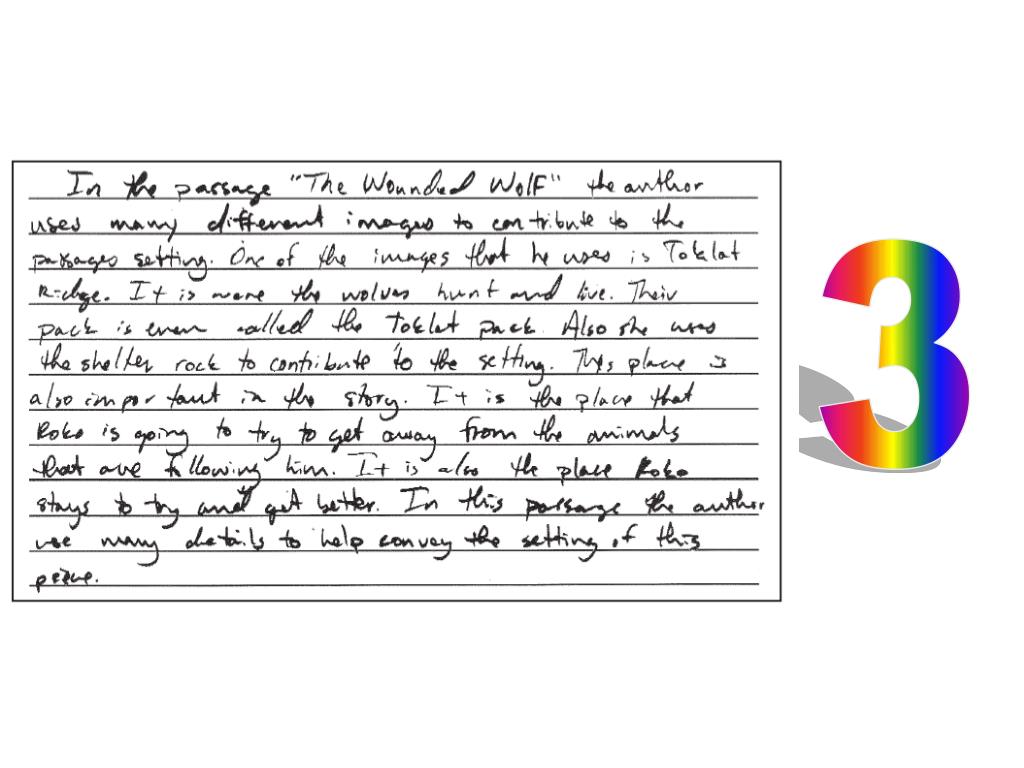 In the passage "The Wounded Wolf" the author
uses many different images to contribute to the
passages setting. One of the images that he uses is Toklat
Ridge. It is were the wolves hunt and live. Their
pack is even called the Toklat pack. Also she uses
the shelter rock to contribute to the setting. This place is
also important in the story. It is the place that
Roko is going to try to get away from the animals
that are following him. It is also the place Roko
stays to try and get better. In this passage the author
use many details to help convey the setting of this
peice.
3